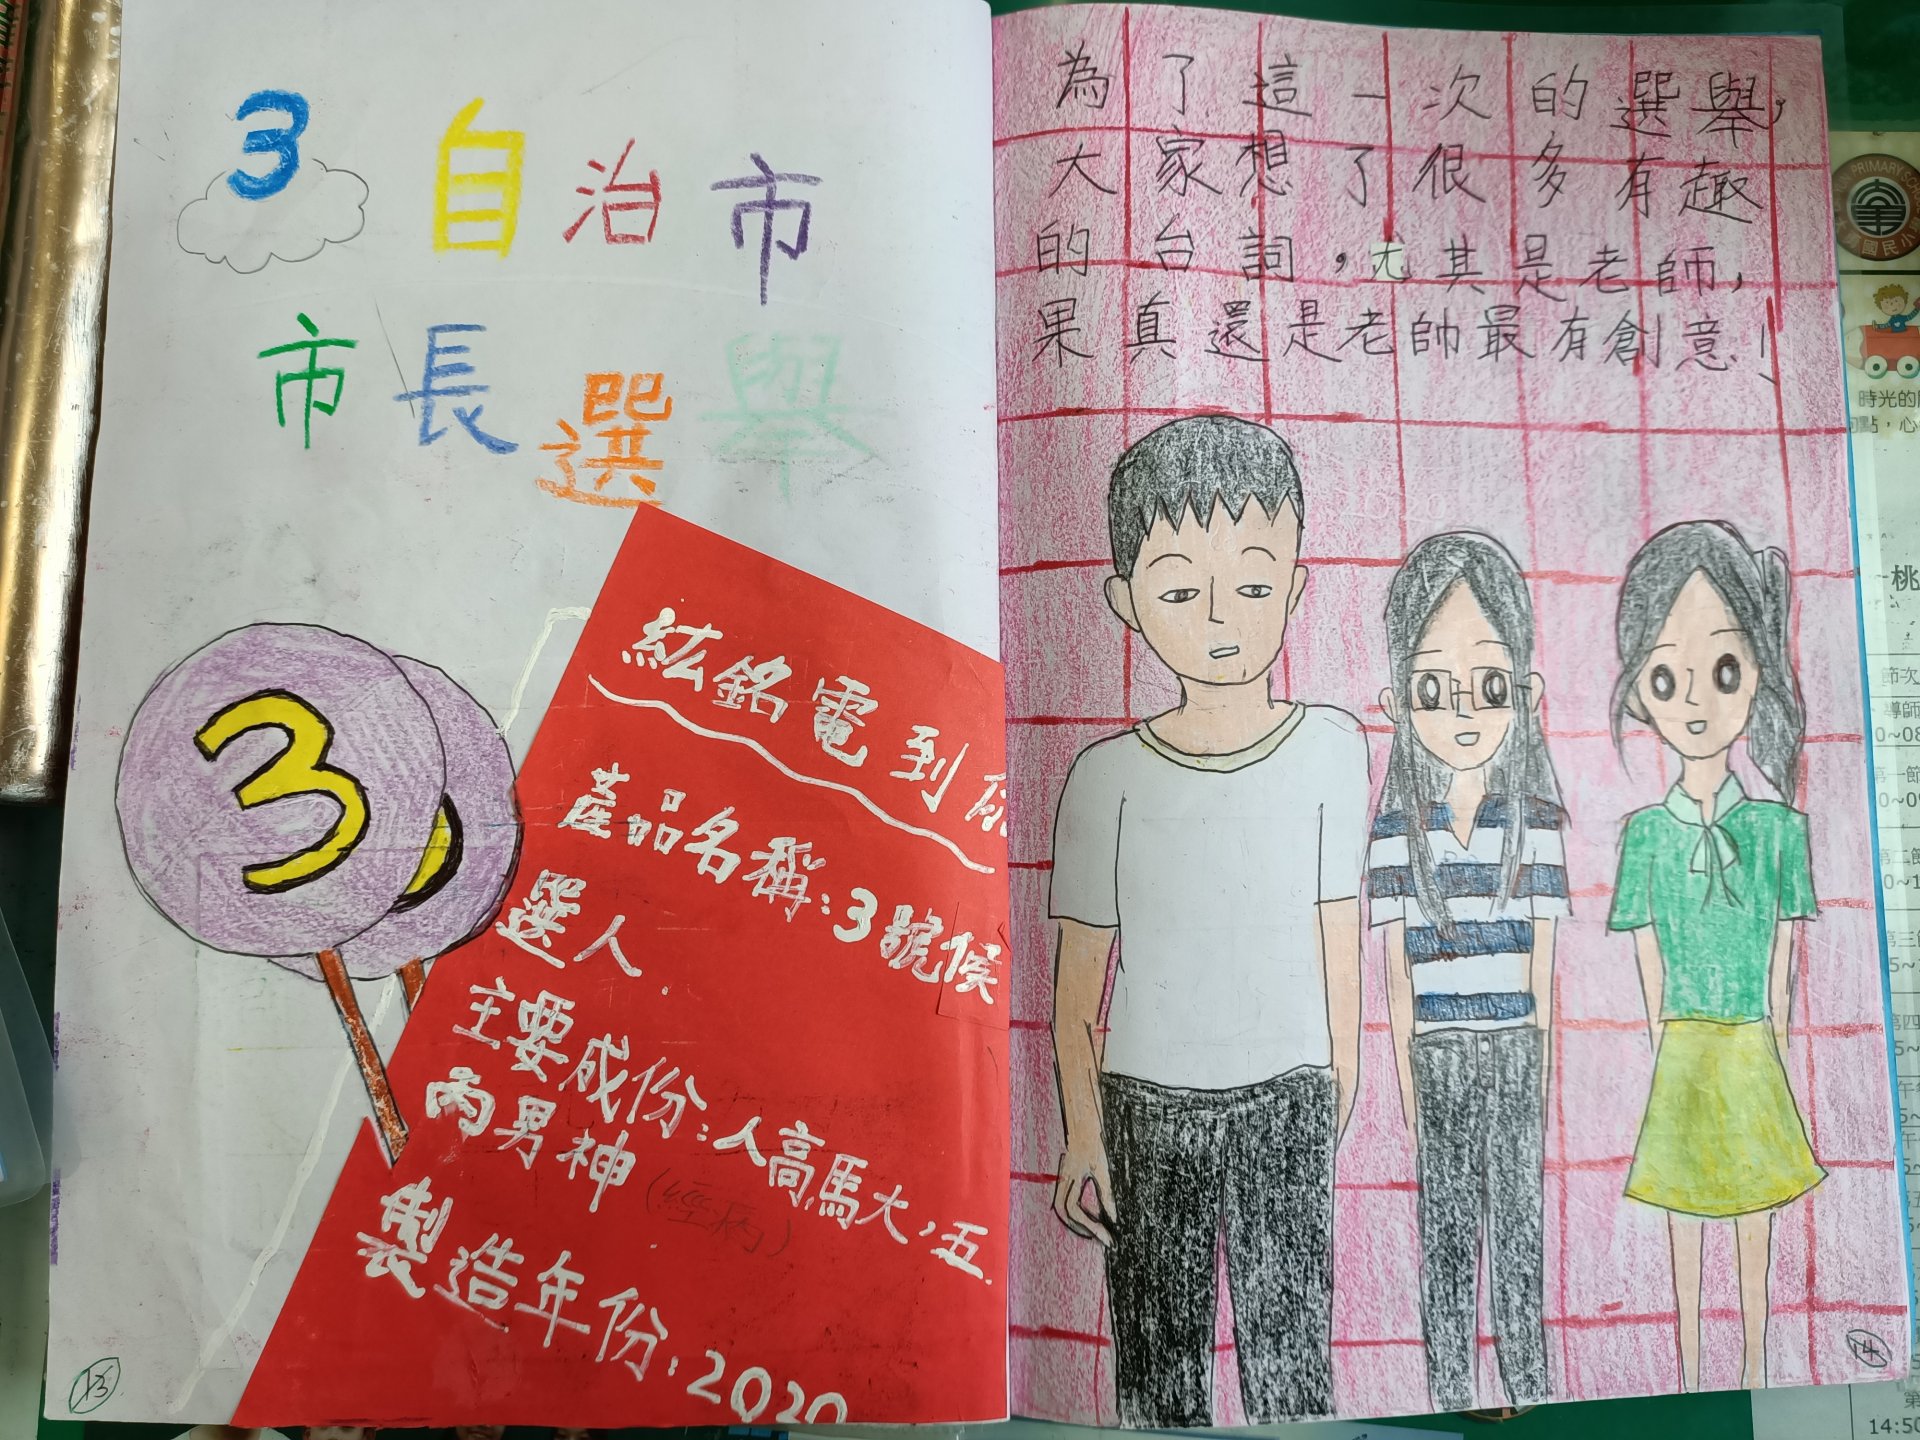 3 自治市
市長選舉
3
3
紘銘電到
產品名稱:3號候
選人
主要成份:人高馬大,五
丙男神
(經病)
製造年份:2020
13
為了這一次的選舉,
大家想了很多有趣
的台詞,尤其是老師,
果真還是老帥最有創意!
14
PRIMARY SCHO
國民小
時光的
點,心
桃
節次
導師
0~08
第一節
0~09
第二節
0~1
第三
5~
第四
5~
午
5~
午
第五
第
14:50